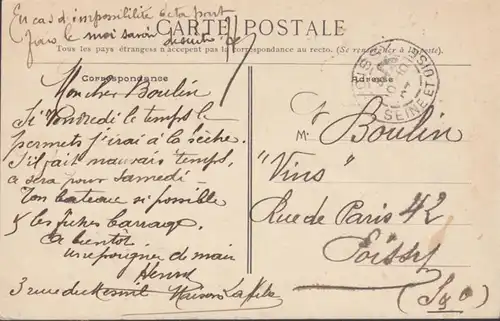 En cas d'impossibilité de ta part
fais le moi savoir
CARTE POSTALE
Tous les pays étrangers n'acceptent pas la correspondance au recto. (Se renseigner à la poste).
Correspondance
Mon cher Boulin
Si Vendredi le temps le
permets j'irai à la
S'il fait mauvais temps,
ça sera pour Samedi
Ton bateau si possible
& les fiches barrage.
a bientôt.
une poignée de main
Henri
3 rue du Mesnil Maisons Laffitte
Adresse
SEINE ET OISE
M. Boulin
"Vins"
Rue de Paris 42
Poissy
(S&O)